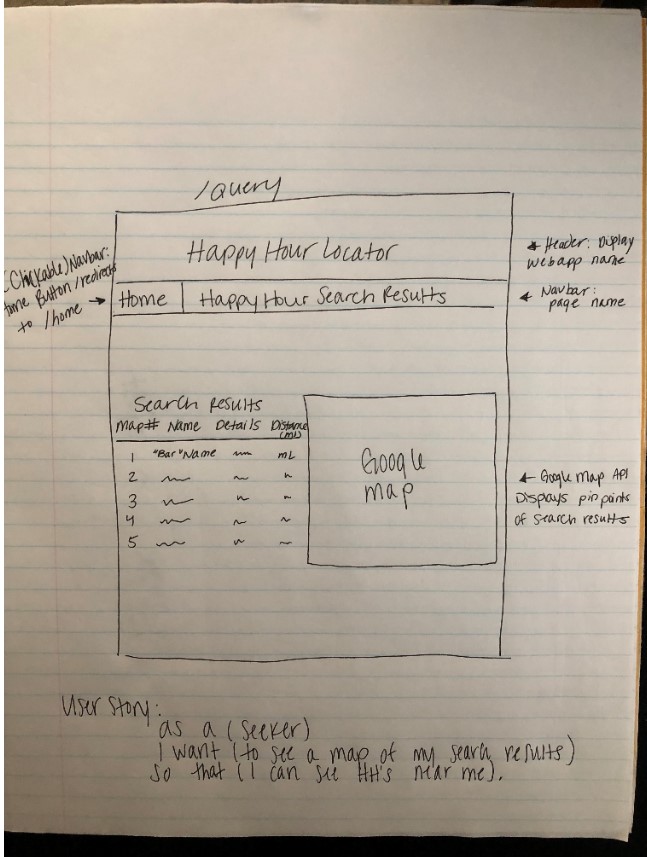 /Query
Happy Hour Locator
Home | Happy Hour Search Results
(Clickable) Navbar:
Home Button/redirects
to /home
* Header: Display
webapp name
Navbar:
page name
Search Results
Map# Name Details Distance
(mL)
1 "Bar" Name mL
2
3
4
5
Google
map
Google Map API
Displays pin points
of search results
User Story:
as a (seeker)
I want (to see a map of my search results)
So that (I can see HH's near me).